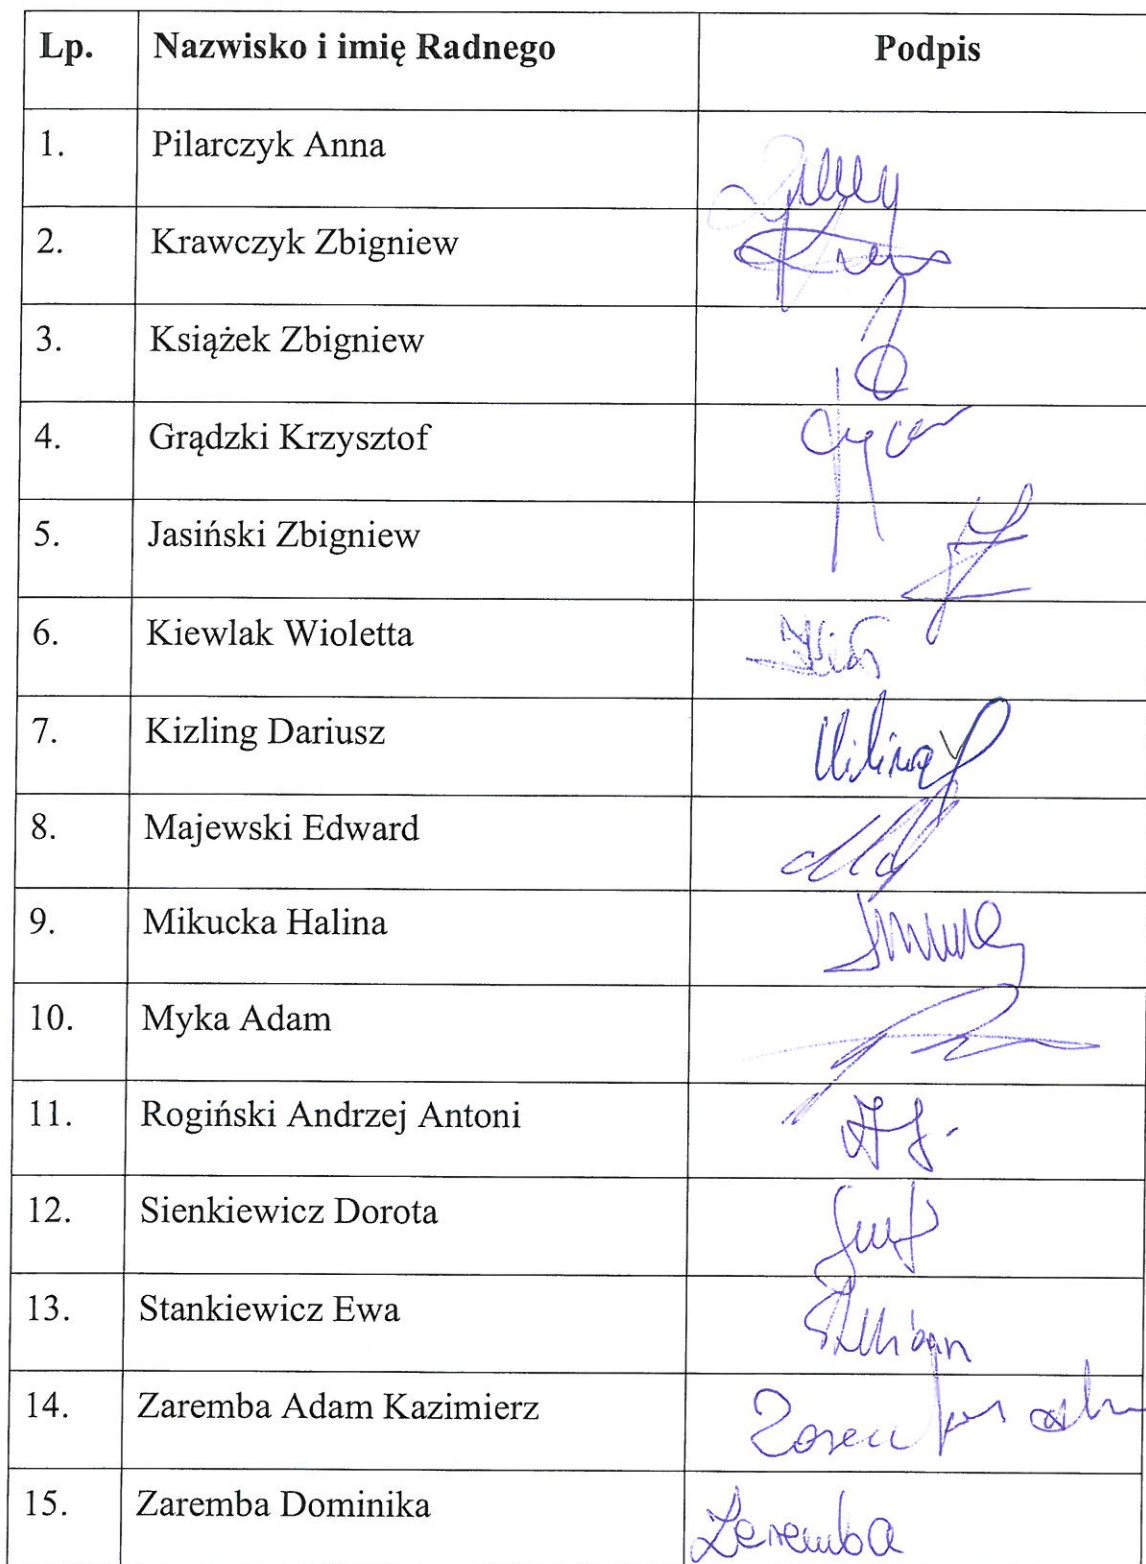 Lp. Nazwisko i imię Radnego Podpis
1. Pilarczyk Anna
2. Krawczyk Zbigniew
3. Książek Zbigniew
4. Grądzki Krzysztof
5. Jasiński Zbigniew
6. Kiewlak Wioletta
7. Kizling Dariusz
8. Majewski Edward
9. Mikucka Halina
10. Myka Adam
11. Rogiński Andrzej Antoni
12. Sienkiewicz Dorota
13. Stankiewicz Ewa
14. Zaremba Adam Kazimierz
15. Zaremba Dominika Zaremba